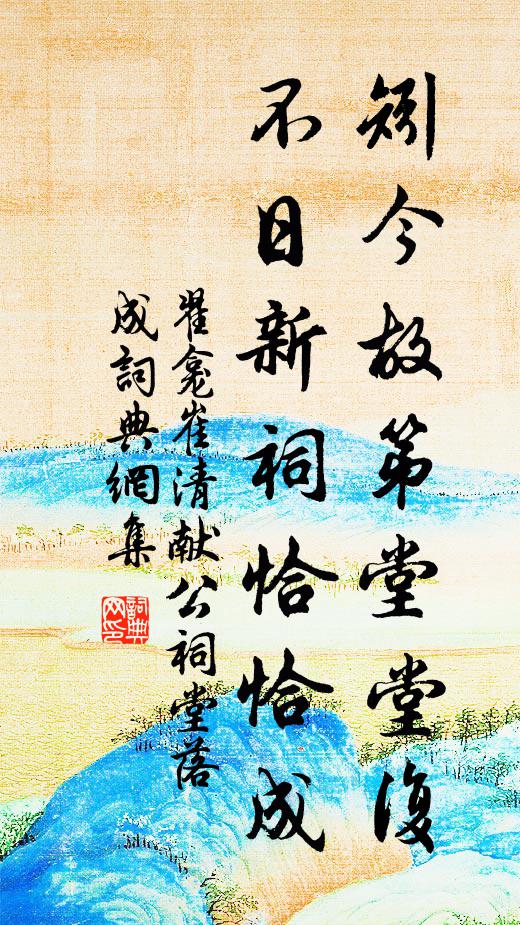 矧今故第堂堂復
不日新祠恰恰成
翟龕崔清献公祠堂落
成詞典網集
詞典
网印